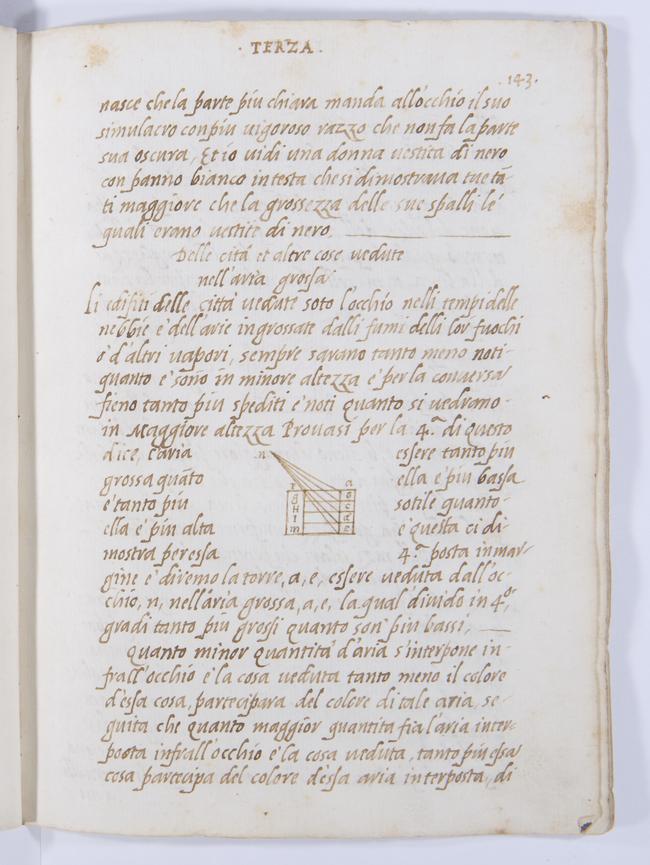 · TERZA ·
· 143 ·
nasce che la parte piu chiara manda all'occhio il suo
simulacro con piu uigoroso razzo che non fa la parte
sua oscura, Et io uidi una donna uestita di nero
con panno bianco in testa che si dimostraua tue tā-
ti maggiore che la grossezza delle sue spalli le
quali erano uestite di nero
Delle citá et altre cose uedute
nell'aria grossa
Li edifiti delle città uedute soto l'occhio nelli tempi delle
nebbie e dell'arie ingrossate dalli fumi delli lor fuochi
o d'altri uapori, sempre sarano tanto meno noti
quanto e sono in minore altezza e per la conuersa
fieno tanto piu spediti e noti quanto si uedrano
in Maggiore altezza Prouasi per la 4.ª di questo
dice, l'aria n essere tanto piu
grossa quāto ella è piu bassa
r a
g o
e tanto piu sotile quanto
H c
I d
ella e piu alta e questa ci di-
m e
mostra per essa 4.ª posta in mar-
gine e diremo la torre, a, e, essere ueduta dall'oc-
chio, n, nell'aria grossa, a, e, la qual diuido in 4.º,
gradi tanto piu grossi quanto son' piu bassi,
quanto minor quantita d'aria s'interpone in-
frall'occhio e la cosa ueduta tanto meno il colore
d'essa cosa, partecipara del colore di tale aria, se-
guita che quanto maggior quantita fia l'aria inter-
posta infrall'occhio e la cosa ueduta, tanto piu essa
cosa partecipa del colore dessa aria interposta, di